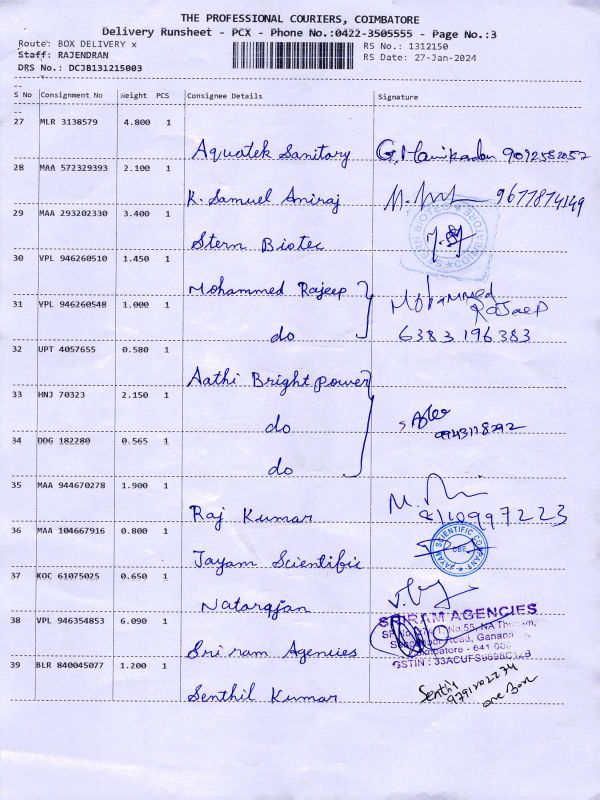 THE PROFESSIONAL COURIERS, COIMBATORE
Delivery Runsheet - PCX - Phone No.:0422-3505555 - Page No.:3
Route: BOX DELIVERY x RS No.: 1312150
Staff: RAJENDRAN RS Date: 27-Jan-2024
DRS No.: DCJB131215003
S No Consignment No Weight PCS Consignee Details Signature
27 MLR 3138579 4.800 1
Aquatek Sanitary G. Manikadan 9092582052
28 MAA 572329393 2.100 1
K. Samuel Aniraj 9677874149
29 MAA 293202330 3.400 1
Stern Biotec
30 VPL 946260510 1.450 1
Mohammed Rajeep Mohammed
31 VPL 946260548 1.000 1 Rajaep
do 6383 196 383
32 UPT 4057655 0.580 1
Aathi Bright power
33 HNJ 70323 2.150 1
do 9943118292
34 DDG 182280 0.565 1
do
35 MAA 944670278 1.900 1
Raj Kumar 8110997223
36 MAA 104667916 0.800 1
Jayam Scientific JAYAM SCIENTIFIC COMPANY CBE
37 KOC 61075025 0.650 1
Natarajan
38 VPL 946354853 6.090 1 SRIRAM AGENCIES
Sri ram Agencies Coimbatore - 641
39 BLR 840045077 1.200 1
Senthil Kumar Senthil
9791202234
one Box